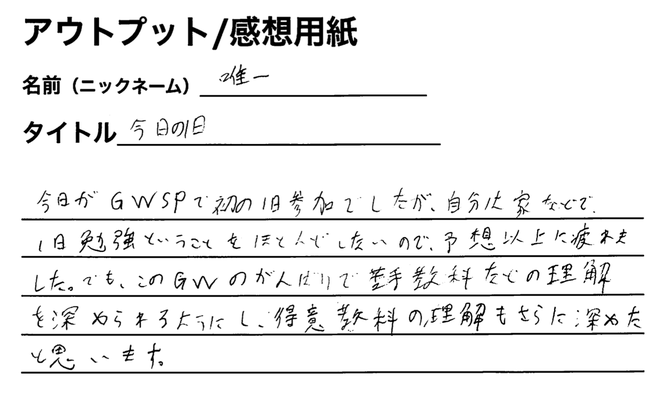 アウトプット/感想用紙
名前（ニックネーム） 唯一
タイトル 今日の1日
今日がGWSPで初の1日参加でしたが、自分は家などで、
1日勉強ということをほとんどしないので、予想以上に疲れま
した。でも、このGWのがんばりで苦手教科などの理解
を深められるようにし、得意教科の理解もさらに深めた
と思います。